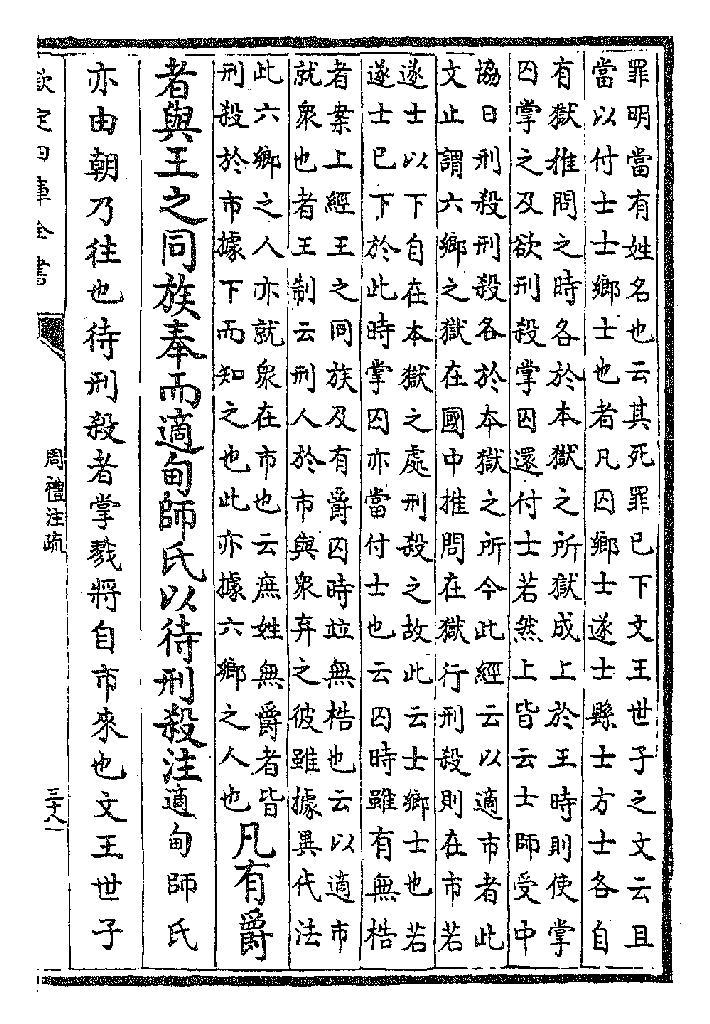 罪明當有姓名也云其死罪已下文王世子之文云且
當以付士士鄉士也者凡囚鄉士遂士縣士方士各自
有獄推問之時各於本獄之所獄成上於王時則使掌
囚掌之及欲刑殺掌囚還付士若然上皆云士師受中
協日刑殺刑殺各於本獄之所今此經云以適市者此
文止謂六鄉之獄在國中推問在獄行刑殺則在市若
遂士以下自在本獄之處刑殺之故此云士鄉士也若
遂士已下於此時掌囚亦當付士也云囚時雖有無梏
者案上經王之同族及有爵囚時竝無梏也云以適市
就衆也者王制云刑人於市與衆弃之彼雖據異代法
此六鄉之人亦就衆在市也云庶姓無爵者皆
刑殺於市據下而知之也此亦據六鄉之人也
凡有爵
者與王之同族奉而適甸師氏以待刑殺注適甸師氏
亦由朝乃往也待刑殺者掌戮將自市來也文王世子
欽定四庫全書
周禮注疏
三十八